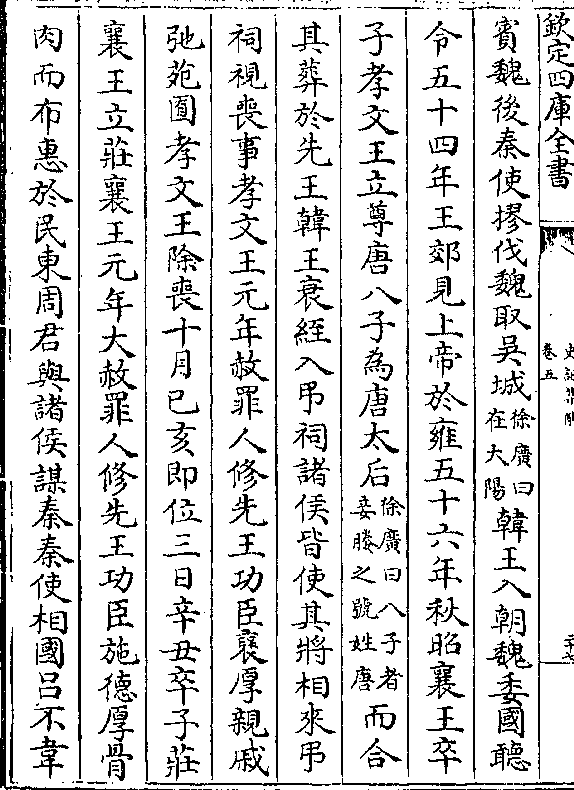 欽定四庫全書
卷五
賓魏後秦使摎伐魏取吳城徐廣曰在大陽韓王入朝魏委國聽
令五十四年王郊見上帝於雍五十六年秋昭襄王卒
子孝文王立尊唐八子為唐太后徐廣曰八子者妾媵之號姓唐而合
其葬於先王韓王衰絰入弔祠諸侯皆使其將相來弔
祠視喪事孝文王元年赦罪人修先王功臣襃厚親戚
弛苑囿孝文王除喪十月已亥即位三日辛丑卒子莊
襄王立莊襄王元年大赦罪人修先王功臣施德厚骨
肉而布惠於民東周君與諸侯謀秦秦使相國吕不韋